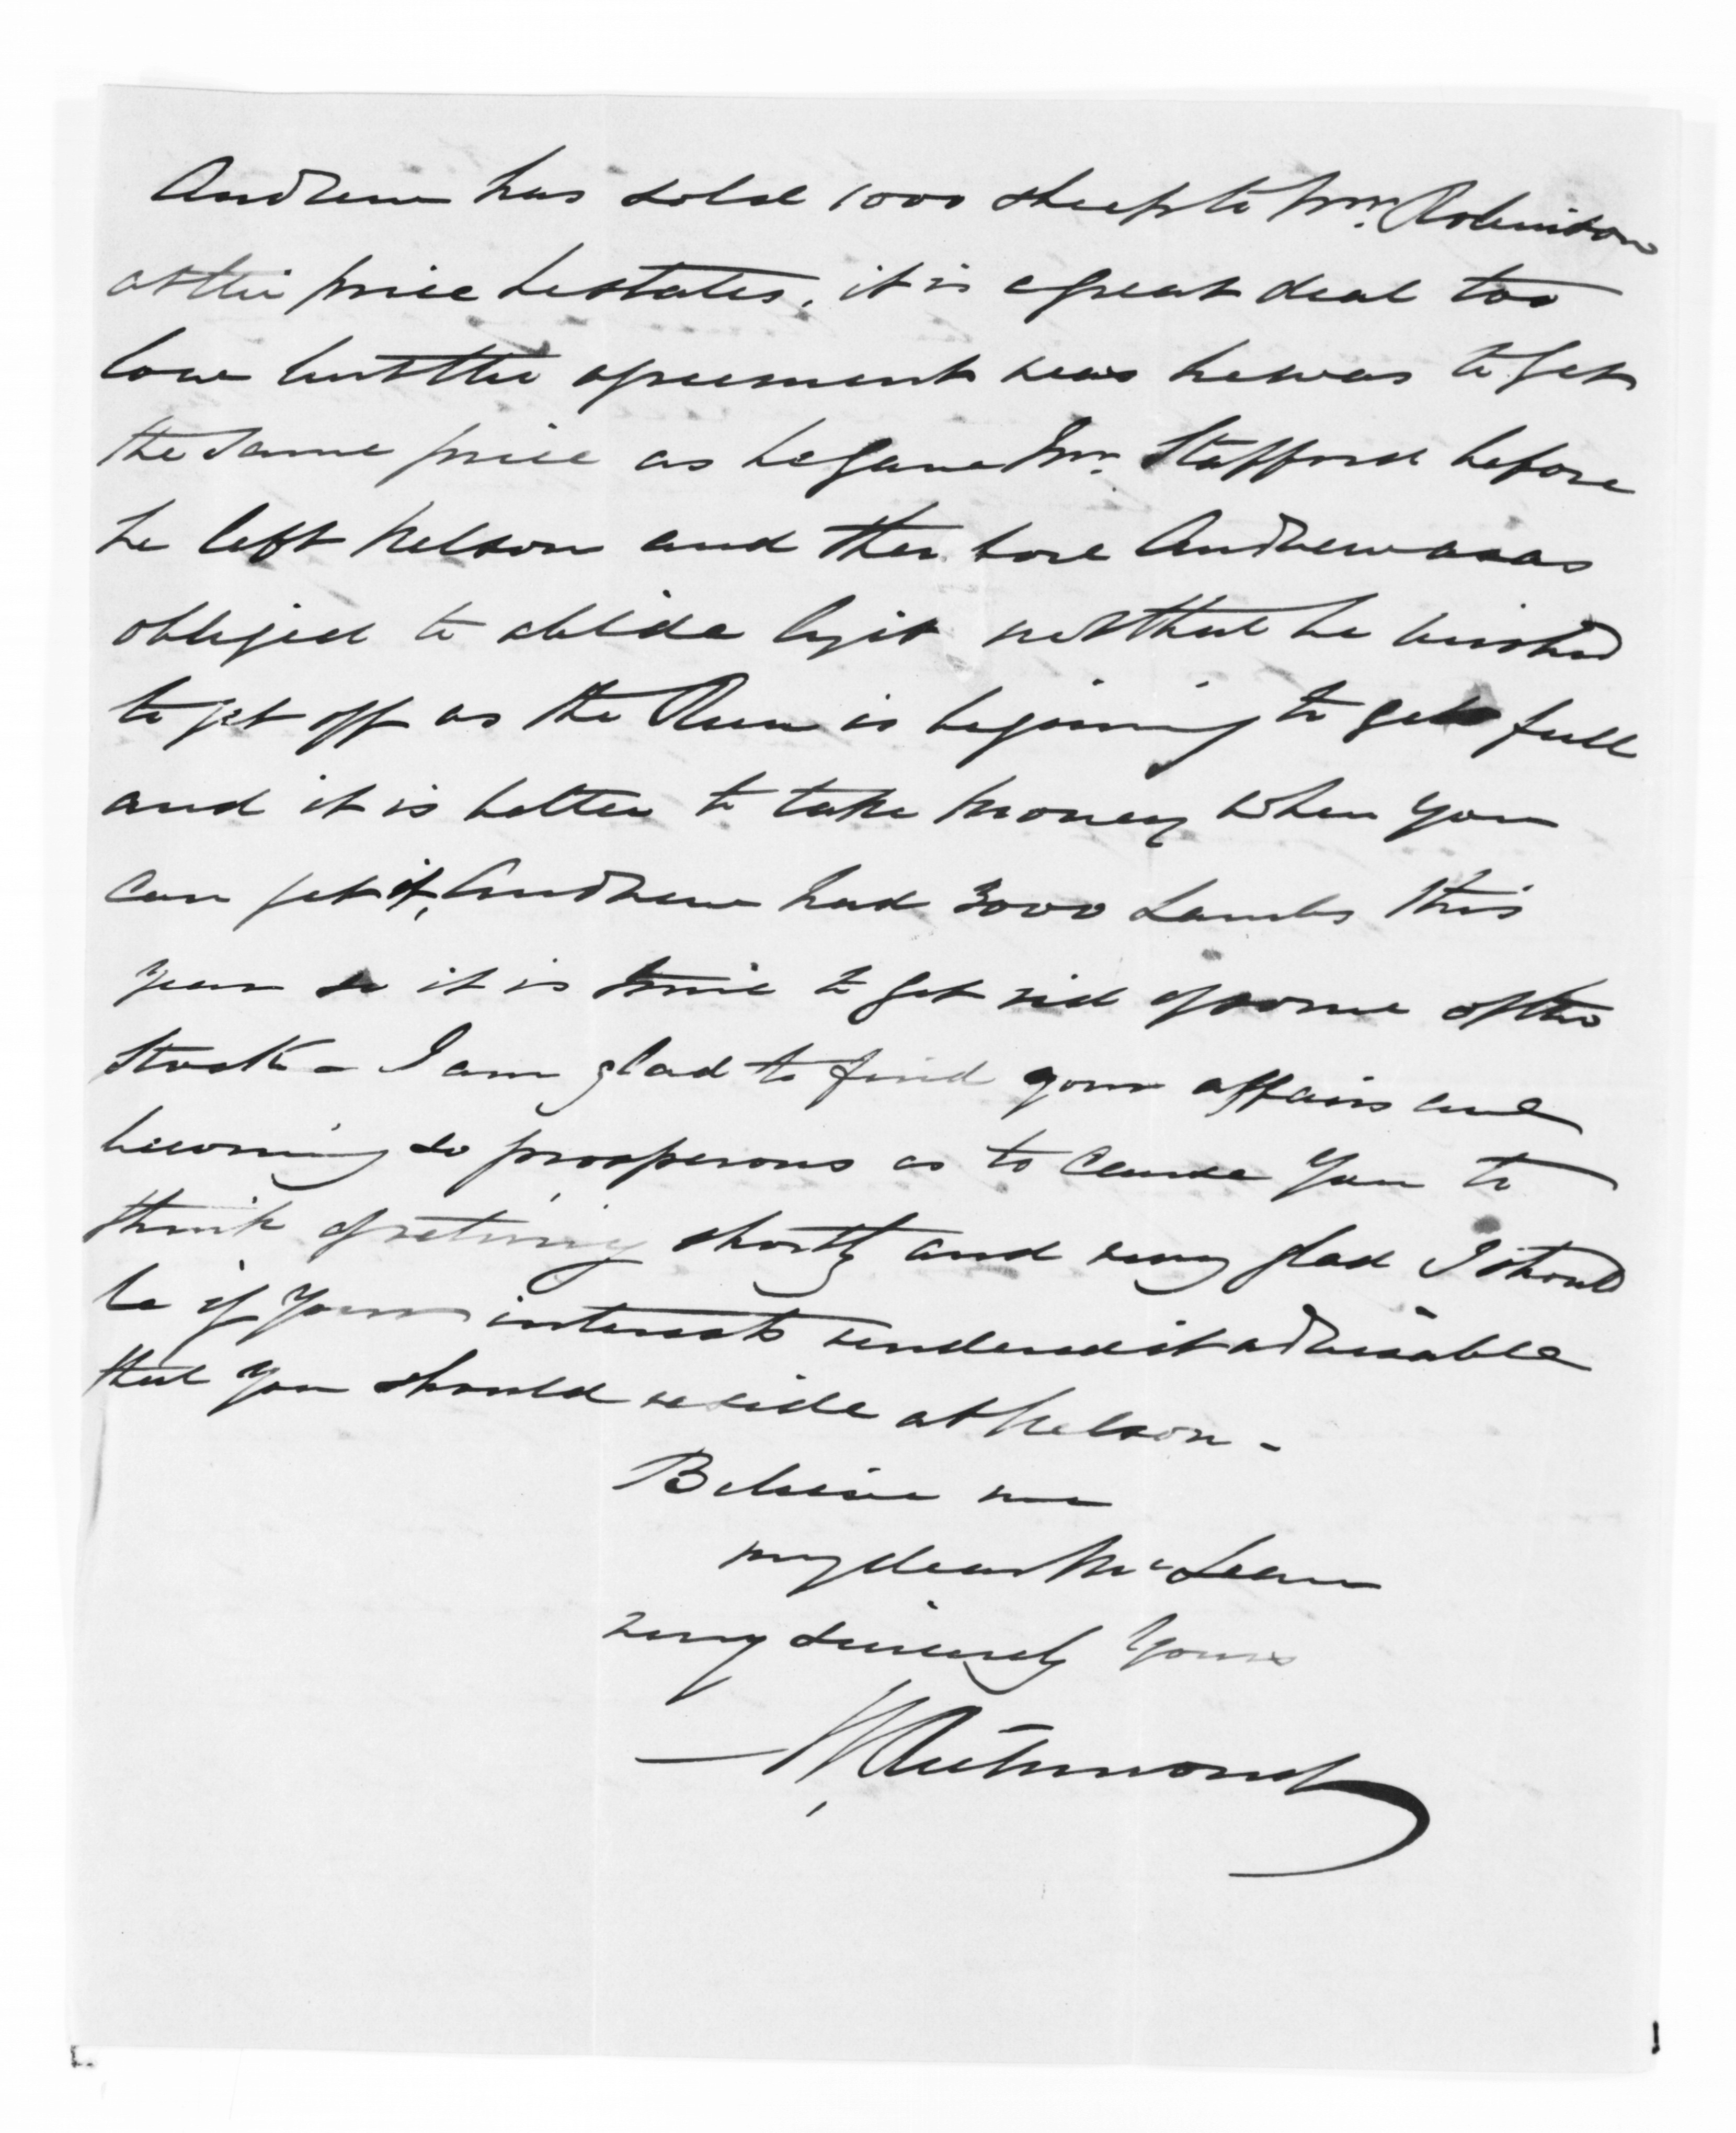 Andrew has sold 1000 sheep to Mr. Robinson
at the price he states, it is a great deal too
low but the agreement was he was to get
the same price as he gave Mr. Stafford before
he left Nelson and therefore Andrew was
obliged to abide by it not that he wished
to get off as the Run is begining to get full
and it is better to take money when you
can get it, Andrew had 3000 Lambs this
year so it is time to get rid of some of the
stock - I am glad to find your affairs are
becoming so prosperous as to cause you to
think of retiring shortly and very glad I should
be if your interests rendered it advisable
that you should reside at Nelson -
Believe me
my dear McLean
very sincerely yours
Richmond